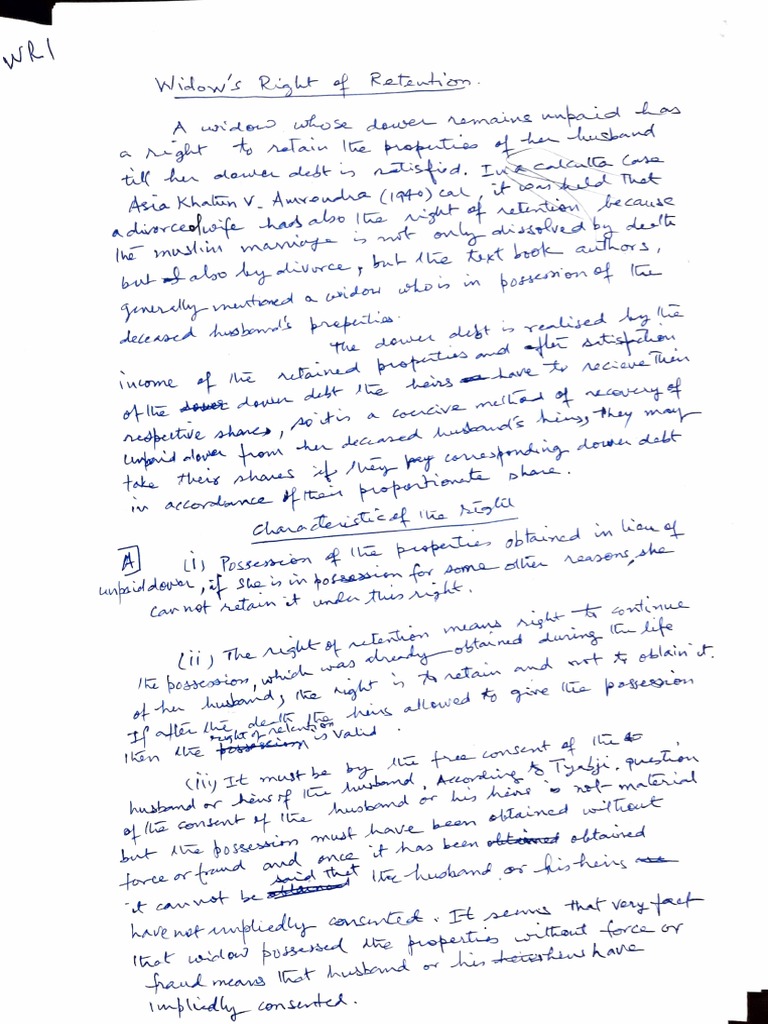 WR1
Widow's Right of Retention.
A widow whose dower remains unpaid has
a right to retain the properties of her husband
till her dower debt is satisfied. In a calcutta case
Asia Khatun V. Amrendra (1940) cal, it was held that
a divorced wife had also the right of retention because
the muslim marriage is not only dissolved by death
but also by divorce, but the text book authors,
generally mentioned a widow who is in possession of the
deceased husband's properties.
The dower debt is realised by the
income of the retained properties and after satisfaction
of the dower dower debt the heirs have to recieve their
respective shares, so it is a coercive method of recovery of
unpaid dower from her deceased husband's heirs, they may
take their shares if they pay corresponding dower debt
in accordance of their proportionate share.
Characteristic of the right
A (i) Possession of the properties obtained in lieu of
unpaid dower, if she is in possession for some other reasons, she
can not retain it under this right.
(ii) The right of retention means right to continue
the possession, which was already obtained during the life
of her husband, the right is to retain and not to obtain it.
If after the death the heirs allowed to give the possession
then the right of retention possession is valid.
(iii) It must be by the free consent of the
husband or heirs of the husband. According to Tyabji. question
of the consent of the husband or his heirs is not material
but the possession must have been obtained without
force or fraud and once it has been obtained obtained
it cannot be said that obtained the husband or his heirs
have not impliedly consented. It seems that very fact
that widow possessed the properties without force or
fraud means that husband or his heirs have
impliedly consented.